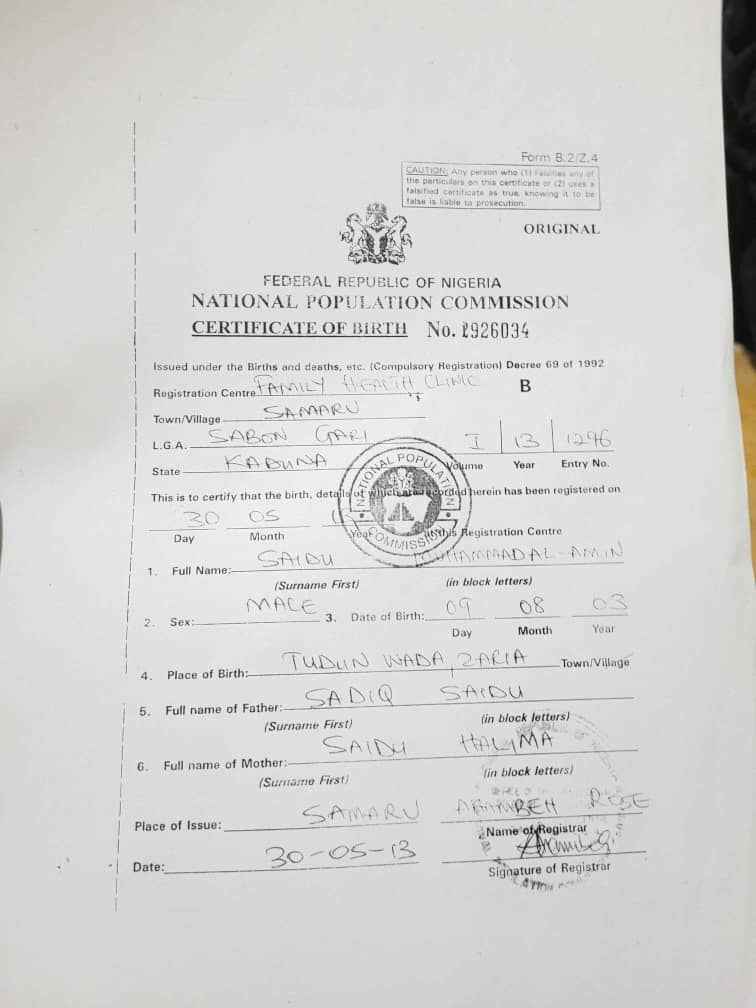 Form B.2/Z.4
CAUTION: Any person who (1) falsifies any of
the particulars on this certificate or (2) uses a
falsified certificate as true, knowing it to be
false is liable to prosecution.
ORIGINAL
FEDERAL REPUBLIC OF NIGERIA
NATIONAL POPULATION COMMISSION
CERTIFICATE OF BIRTH No. 926034
Issued under the Births and deaths, etc. (Compulsory Registration) Decree 69 of 1992
Registration Centre FAMILY HEALTH CLINIC B
Town/Village SAMARU
L.G.A. SABON GARI I 13 1296
State KADUNA Volume Year Entry No.
NATIONAL POPULATION COMMISSION
This is to certify that the birth, details of which are recorded herein has been registered on
30 05
Day Month Year at this Registration Centre
1. Full Name: SAIDU MUHAMMAD AL-AMIN
(Surname First) (in block letters)
2. Sex: MALE 3. Date of Birth: 09 08 03
Day Month Year
4. Place of Birth: TUDUN WADA, ZARIA Town/Village
5. Full name of Father: SADIQ SAIDU
(Surname First) (in block letters)
6. Full name of Mother: SAIDU HALIMA
(Surname First) (in block letters)
Place of Issue: SAMARU ROSE
Name of Registrar
Date: 30-05-13
Signature of Registrar